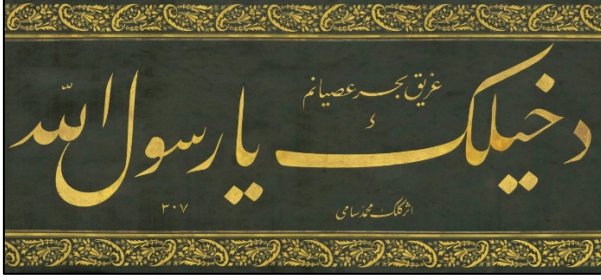 غريق بحر عصيانم
دخيلك يا رسول الله
اثر كلك محمد سامى
٣٠٧